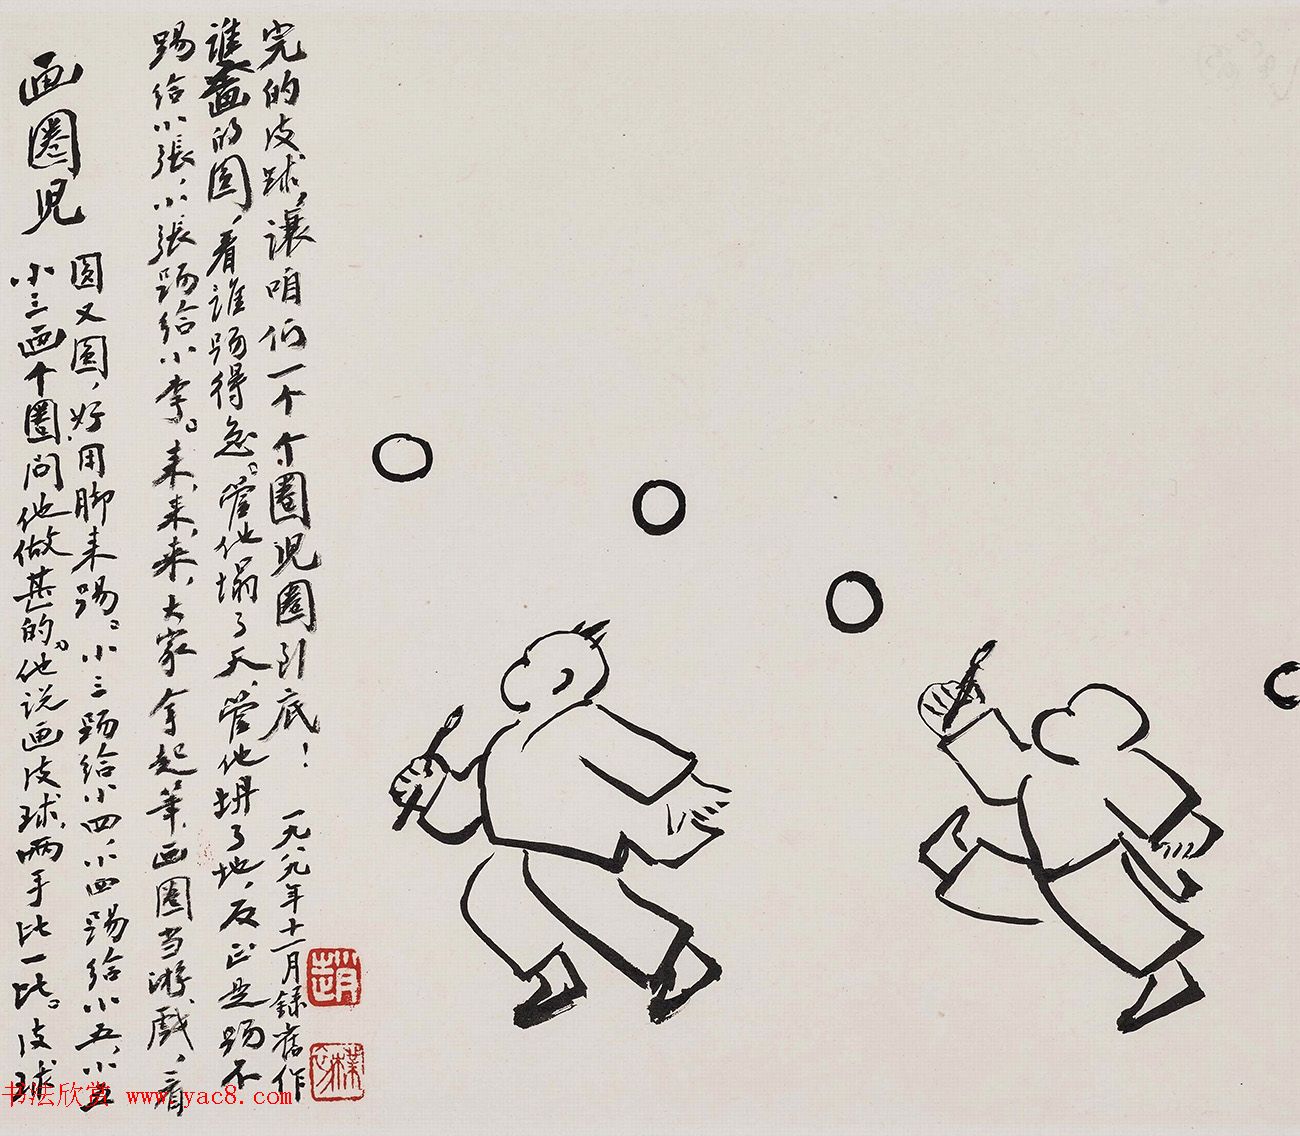 画圈児
小三画个圈问他做甚的。他说画皮球，两手比一比。皮球
圆又圆，好用脚来踢。小三踢给小四，小四踢给小五，小五
踢给小張，小張踢给小李。来，来，来，大家拿起筆，画圈当游戲，看
谁画的圆，看谁踢得急。管他塌了天，管他坍了地，反正是踢不
完的皮球，讓咱们一个个圈児圈到底！
一九八九年十一月録舊作
趙
樸初
书法欣赏 www.yac8.com